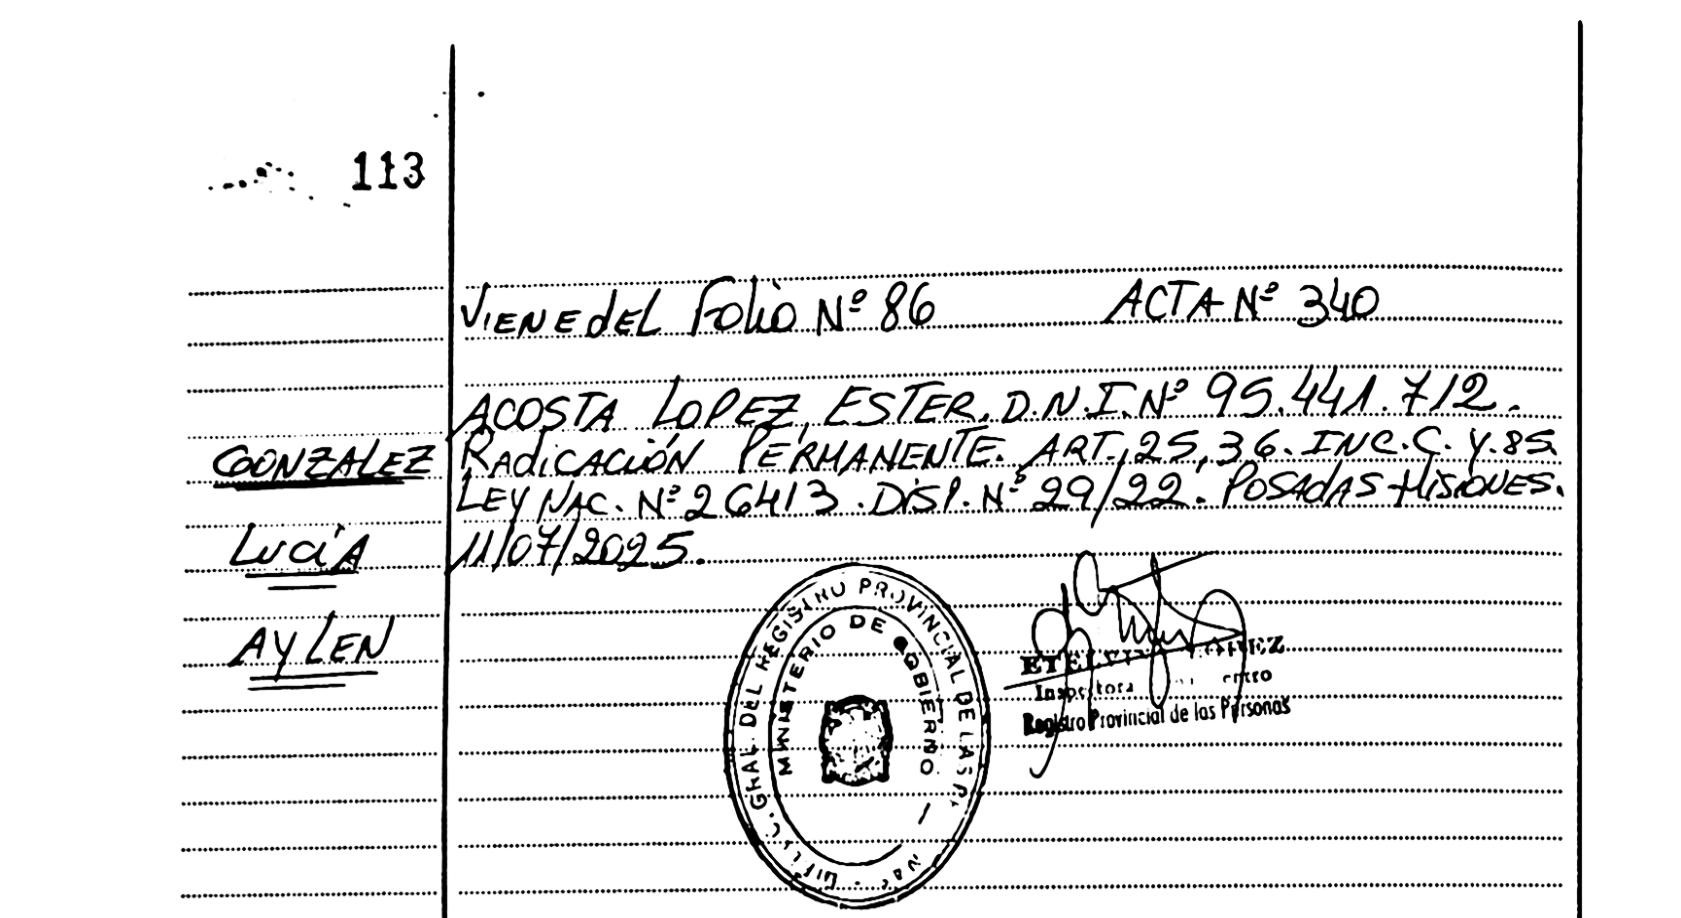 113
VIENE dEL Folio Nº 86 ACTA Nº 340
ACOSTA LOPEZ, ESTER. D.N.I. Nº 95.441.712.
GONZALEZ
RAdiCACIÓN PERMANENTE. ART. 25, 36. INC. C. Y. 85.
LEY NAC. Nº 26413. DiSP. Nº 29/22. POSAdAS-MISIONES.
LuciA
11/07/2025.
AYLEN
GRAL. DEL REGISTRO PROVINCIAL DE LAS
MINISTERIO DE GOBIERNO
Inspectora
Registro Provincial de las Personas